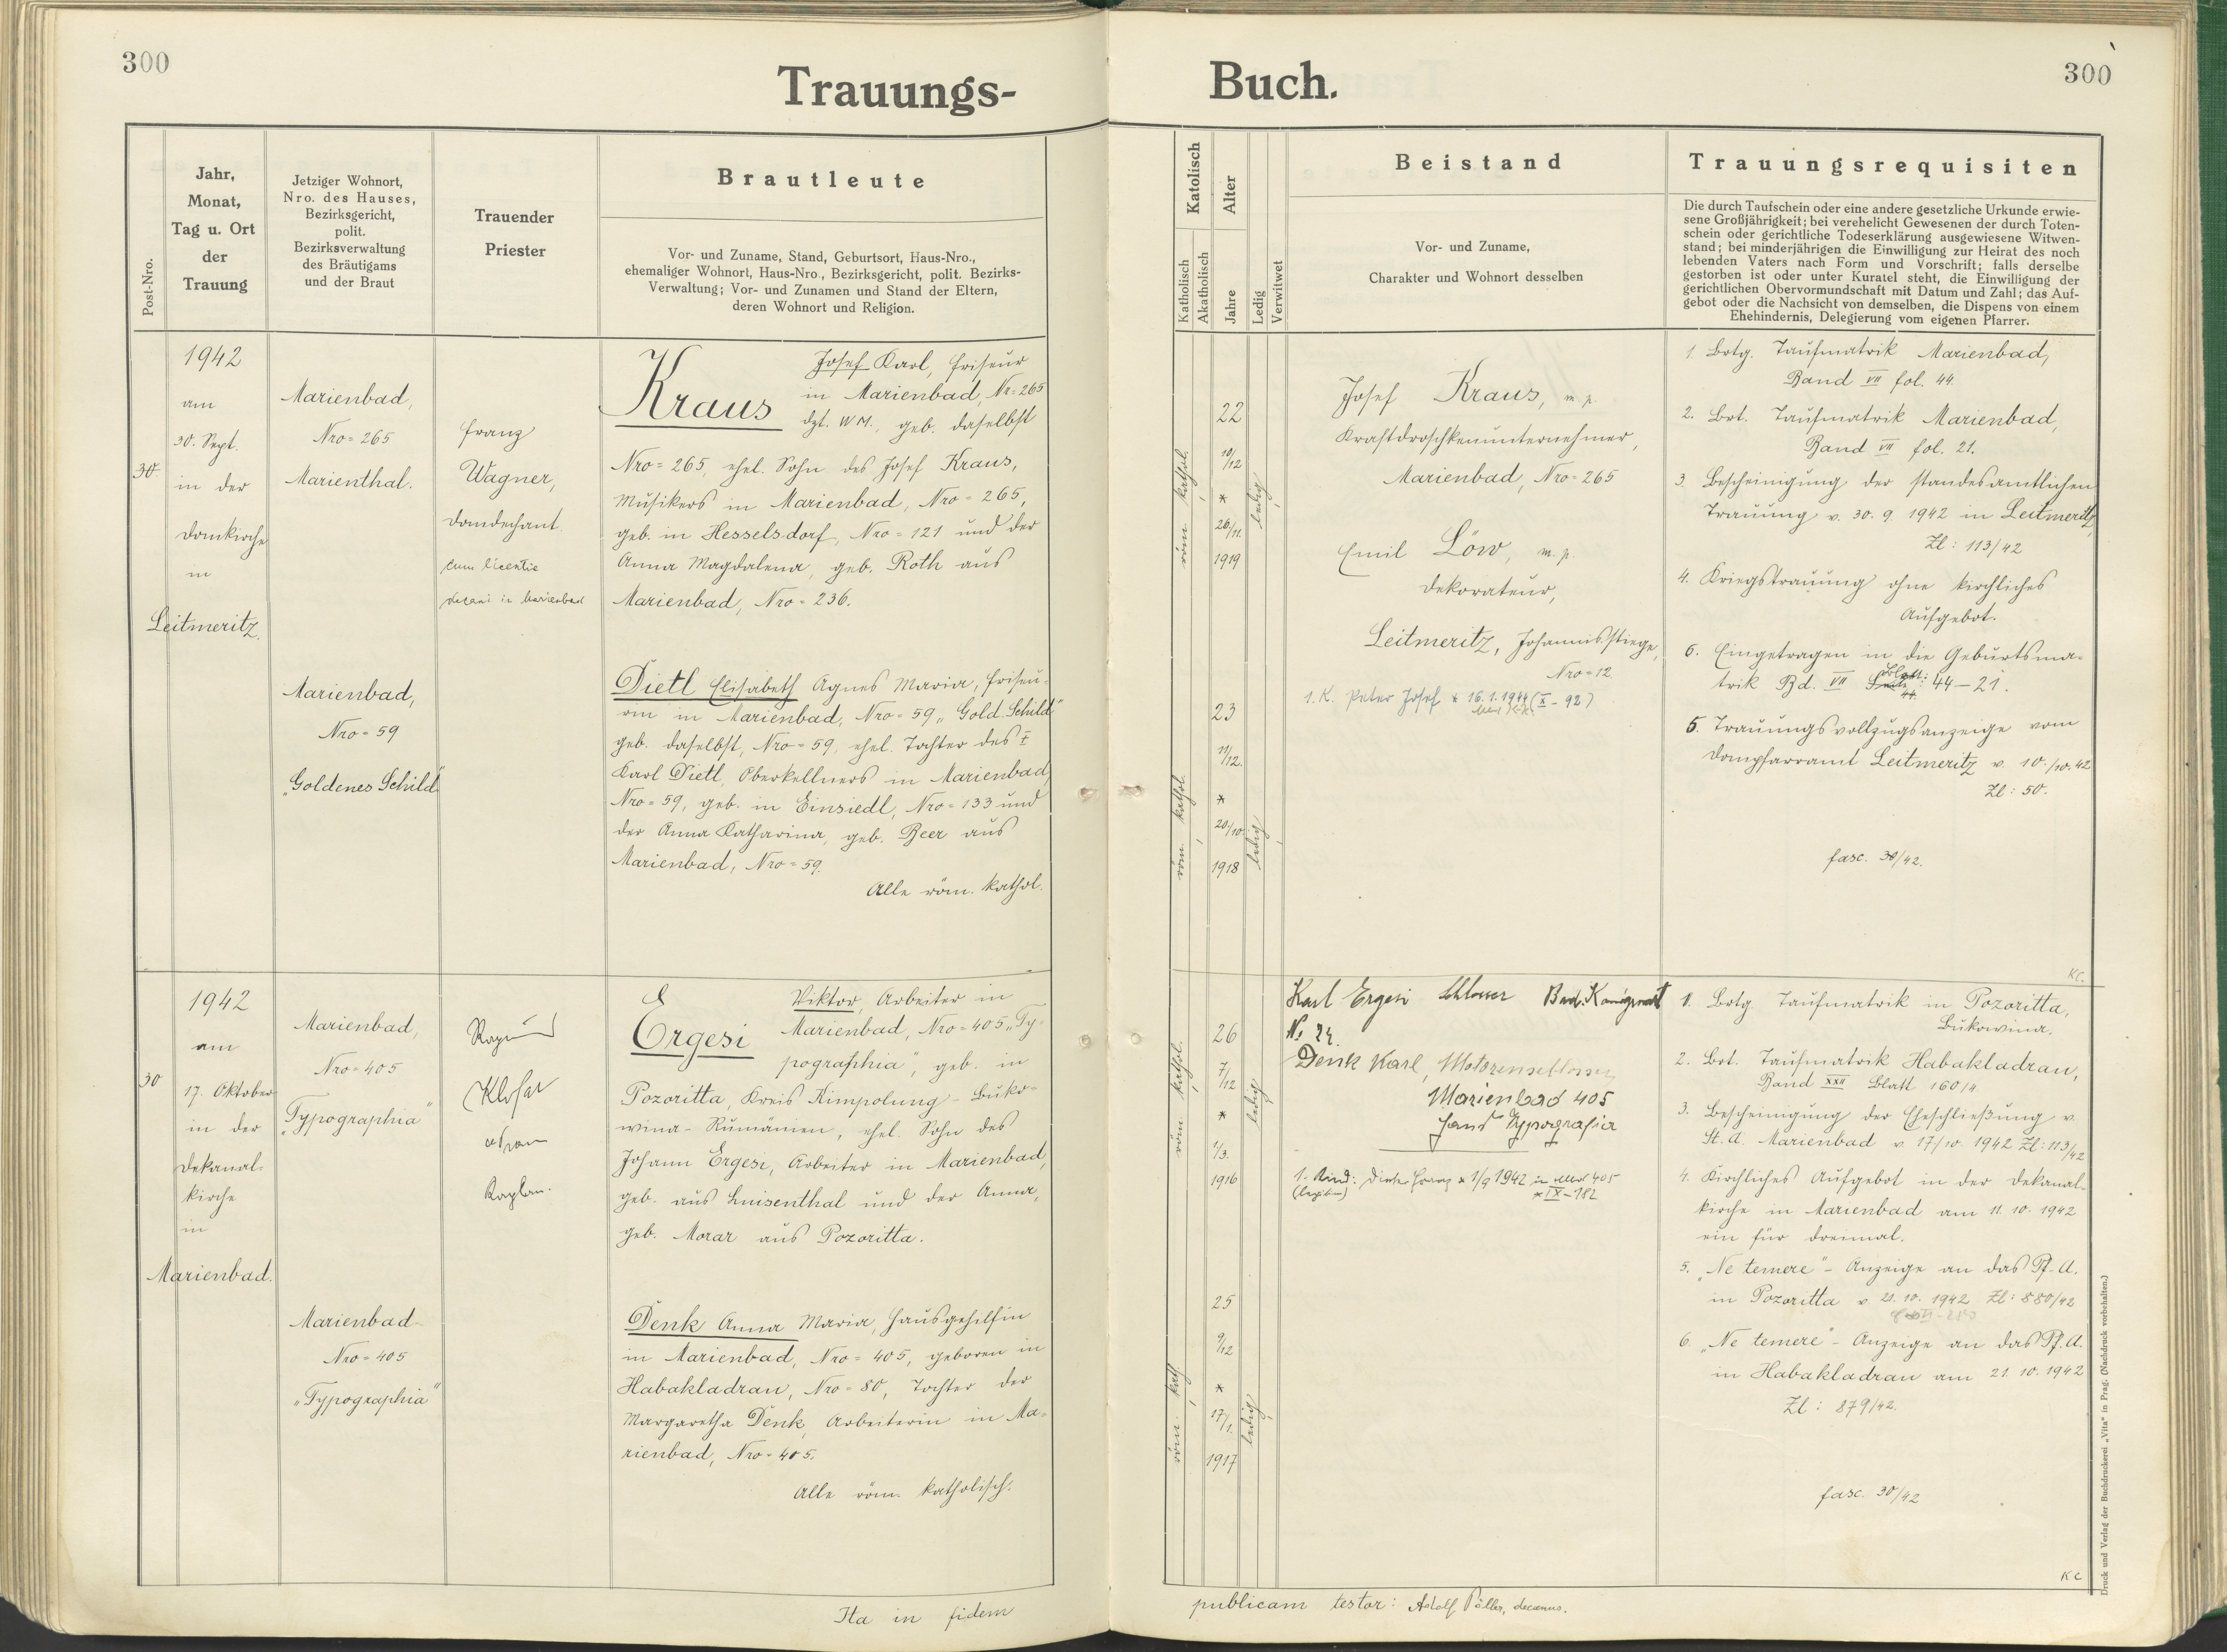 300
Trauungs-
Post-Nro.
Jahr,
Monat,
Tag u. Ort
der
Trauung
Jetziger Wohnort,
Nro. des Hauses,
Bezirksgericht,
polit.
Bezirksverwaltung
des Bräutigams
und der Braut
Trauender
Priester
Brautleute
Vor- und Zuname, Stand, Geburtsort, Haus-Nro.,
ehemaliger Wohnort, Haus-Nro., Bezirksgericht, polit. Bezirks-
Verwaltung; Vor- und Zunamen und Stand der Eltern,
deren Wohnort und Religion.
30.
1942
am
30. Sept.
in der
Domkirche
in
Leitmeritz.
Marienbad,
Nro= 265
Marienthal.
Franz
Wagner,
Domdechant.
cum licentia
decani in Marienbad
Kraus
Josef Karl, Friseur
in Marienbad, Nr= 265
dzt. W.M., geb. daselbst
Nro= 265, ehel. Sohn des Josef Kraus,
Musikers in Marienbad, Nro= 265,
geb. in Hesselsdorf, Nro= 121 und der
Anna Magdalena, geb. Roth aus
Marienbad, Nro= 236.
Marienbad,
Nro= 59
„Goldenes Schild"
Dietl Elisabeth Agnes Maria, Friseu-
rin in Marienbad, Nro= 59 „Gold. Schild"
geb. daselbst, Nro= 59, ehel. Tochter des †
Karl Dietl, Oberkellners in Marienbad,
Nro= 59, geb. in Einsiedl, Nro= 133 und
der Anna Katharina, geb. Beer aus
Marienbad, Nro= 59.
Alle röm. kathol.
30
1942
am
17. Oktober
in der
Dekanal-
kirche
in
Marienbad.
Marienbad,
Nro= 405
„Typographia"
Klofar
Kaplan.
Ergesi
Viktor, Arbeiter in
Marienbad, Nro= 405 „Ty-
pographia", geb. in
Pozoritta, Kreis Kimpolung - Buko-
wina - Rumänien, ehel. Sohn des
Johann Ergesi, Arbeiter in Marienbad,
geb. aus Luisenthal und der Anna,
geb. Morar aus Pozoritta.
Marienbad
Nro= 405
„Typographia"
Denk Anna Maria, Hausgehilfin
in Marienbad, Nro= 405, geboren in
Habakladrau, Nro= 80, Tochter der
Margaretha Denk, Arbeiterin in Ma-
rienbad, Nro= 405.
Alle röm. katholisch.
Ita in fidem
300
Buch.
Katolisch
Katholisch
Akatholisch
Alter
Jahre
Ledig
Verwitwet
Beistand
Vor- und Zuname,
Charakter und Wohnort desselben
Trauungsrequisiten
Die durch Taufschein oder eine andere gesetzliche Urkunde erwie-
sene Großjährigkeit; bei verehelicht Gewesenen der durch Toten-
schein oder gerichtliche Todeserklärung ausgewiesene Witwen-
stand; bei minderjährigen die Einwilligung zur Heirat des noch
lebenden Vaters nach Form und Vorschrift; falls derselbe
gestorben ist oder unter Kuratel steht, die Einwilligung der
gerichtlichen Obervormundschaft mit Datum und Zahl; das Auf-
gebot oder die Nachsicht von demselben, die Dispens von einem
Ehehindernis, Delegierung vom eigenen Pfarrer.
röm. kathol.
22
10/12
*
26/11.
1919
ledig
Josef Kraus, m. p.
Kraftdroschkenunternehmer,
Marienbad, Nro= 265
Emil Löw, m. p.
Dekorateur,
Leitmeritz, Johannisstiege,
Nro= 12.
1. K. Peter Josef * 16.1.1944 (X - 92)
röm. kathol.
23
11/12.
*
20/10.
1918
ledig
1. Brtg. Taufmatrik Marienbad,
Band VII fol. 44.
2. Brt. Taufmatrik Marienbad,
Band VII fol. 21.
3. Bescheinigung der standesamtlichen
Trauung v. 30. 9. 1942 in Leitmeritz,
Zl: 113/42
4. Kriegstrauung ohne kirchliches
Aufgebot.
6. Eingetragen in die Geburtsma-
trik Bd. VII Blatt: 44 - 21.
5. Trauungsvollzugsanzeige vom
Dompfarramt Leitmeritz v. 10./10. 42
Zl: 50.
fasc. 30/42.
KC.
röm. kathol.
26
7/12
*
1/3.
1916
ledig
Karl Ergesi Schlosser Bad. Königswart
No 24.
Denk Karl, Motorenschlosser
Marienbad 405
Haus Typografia
1. Kind: Franz * 1/9 1942 in Mbd 405
* IX - 182
röm. kath.
25
9/12
*
17/1.
1917
ledig
1. Brtg. Taufmatrik in Pozoritta,
Bukowina.
2. Brt. Taufmatrik Habakladrau,
Band XXII Blatt 160/4
3. Bescheinigung der Eheschließung v.
St. A. Marienbad v. 17/10. 1942 Zl: 113/42
4. Kirchliches Aufgebot in der Dekanal-
kirche in Marienbad am 11. 10. 1942
ein für dreimal.
5. „Ne temere" - Anzeige an das Pf. A.
in Pozoritta v. 21. 10. 1942 Zl: 880/42
6. „Ne temere" - Anzeige an das Pf. A.
in Habakladrau am 21. 10. 1942
Zl: 879/42.
fasc. 30/42
KC
publicam testor: Adolf Pöller, decanus.
Druck und Verlag der Buchdruckerei „Vita" in Prag. (Nachdruck vorbehalten.)